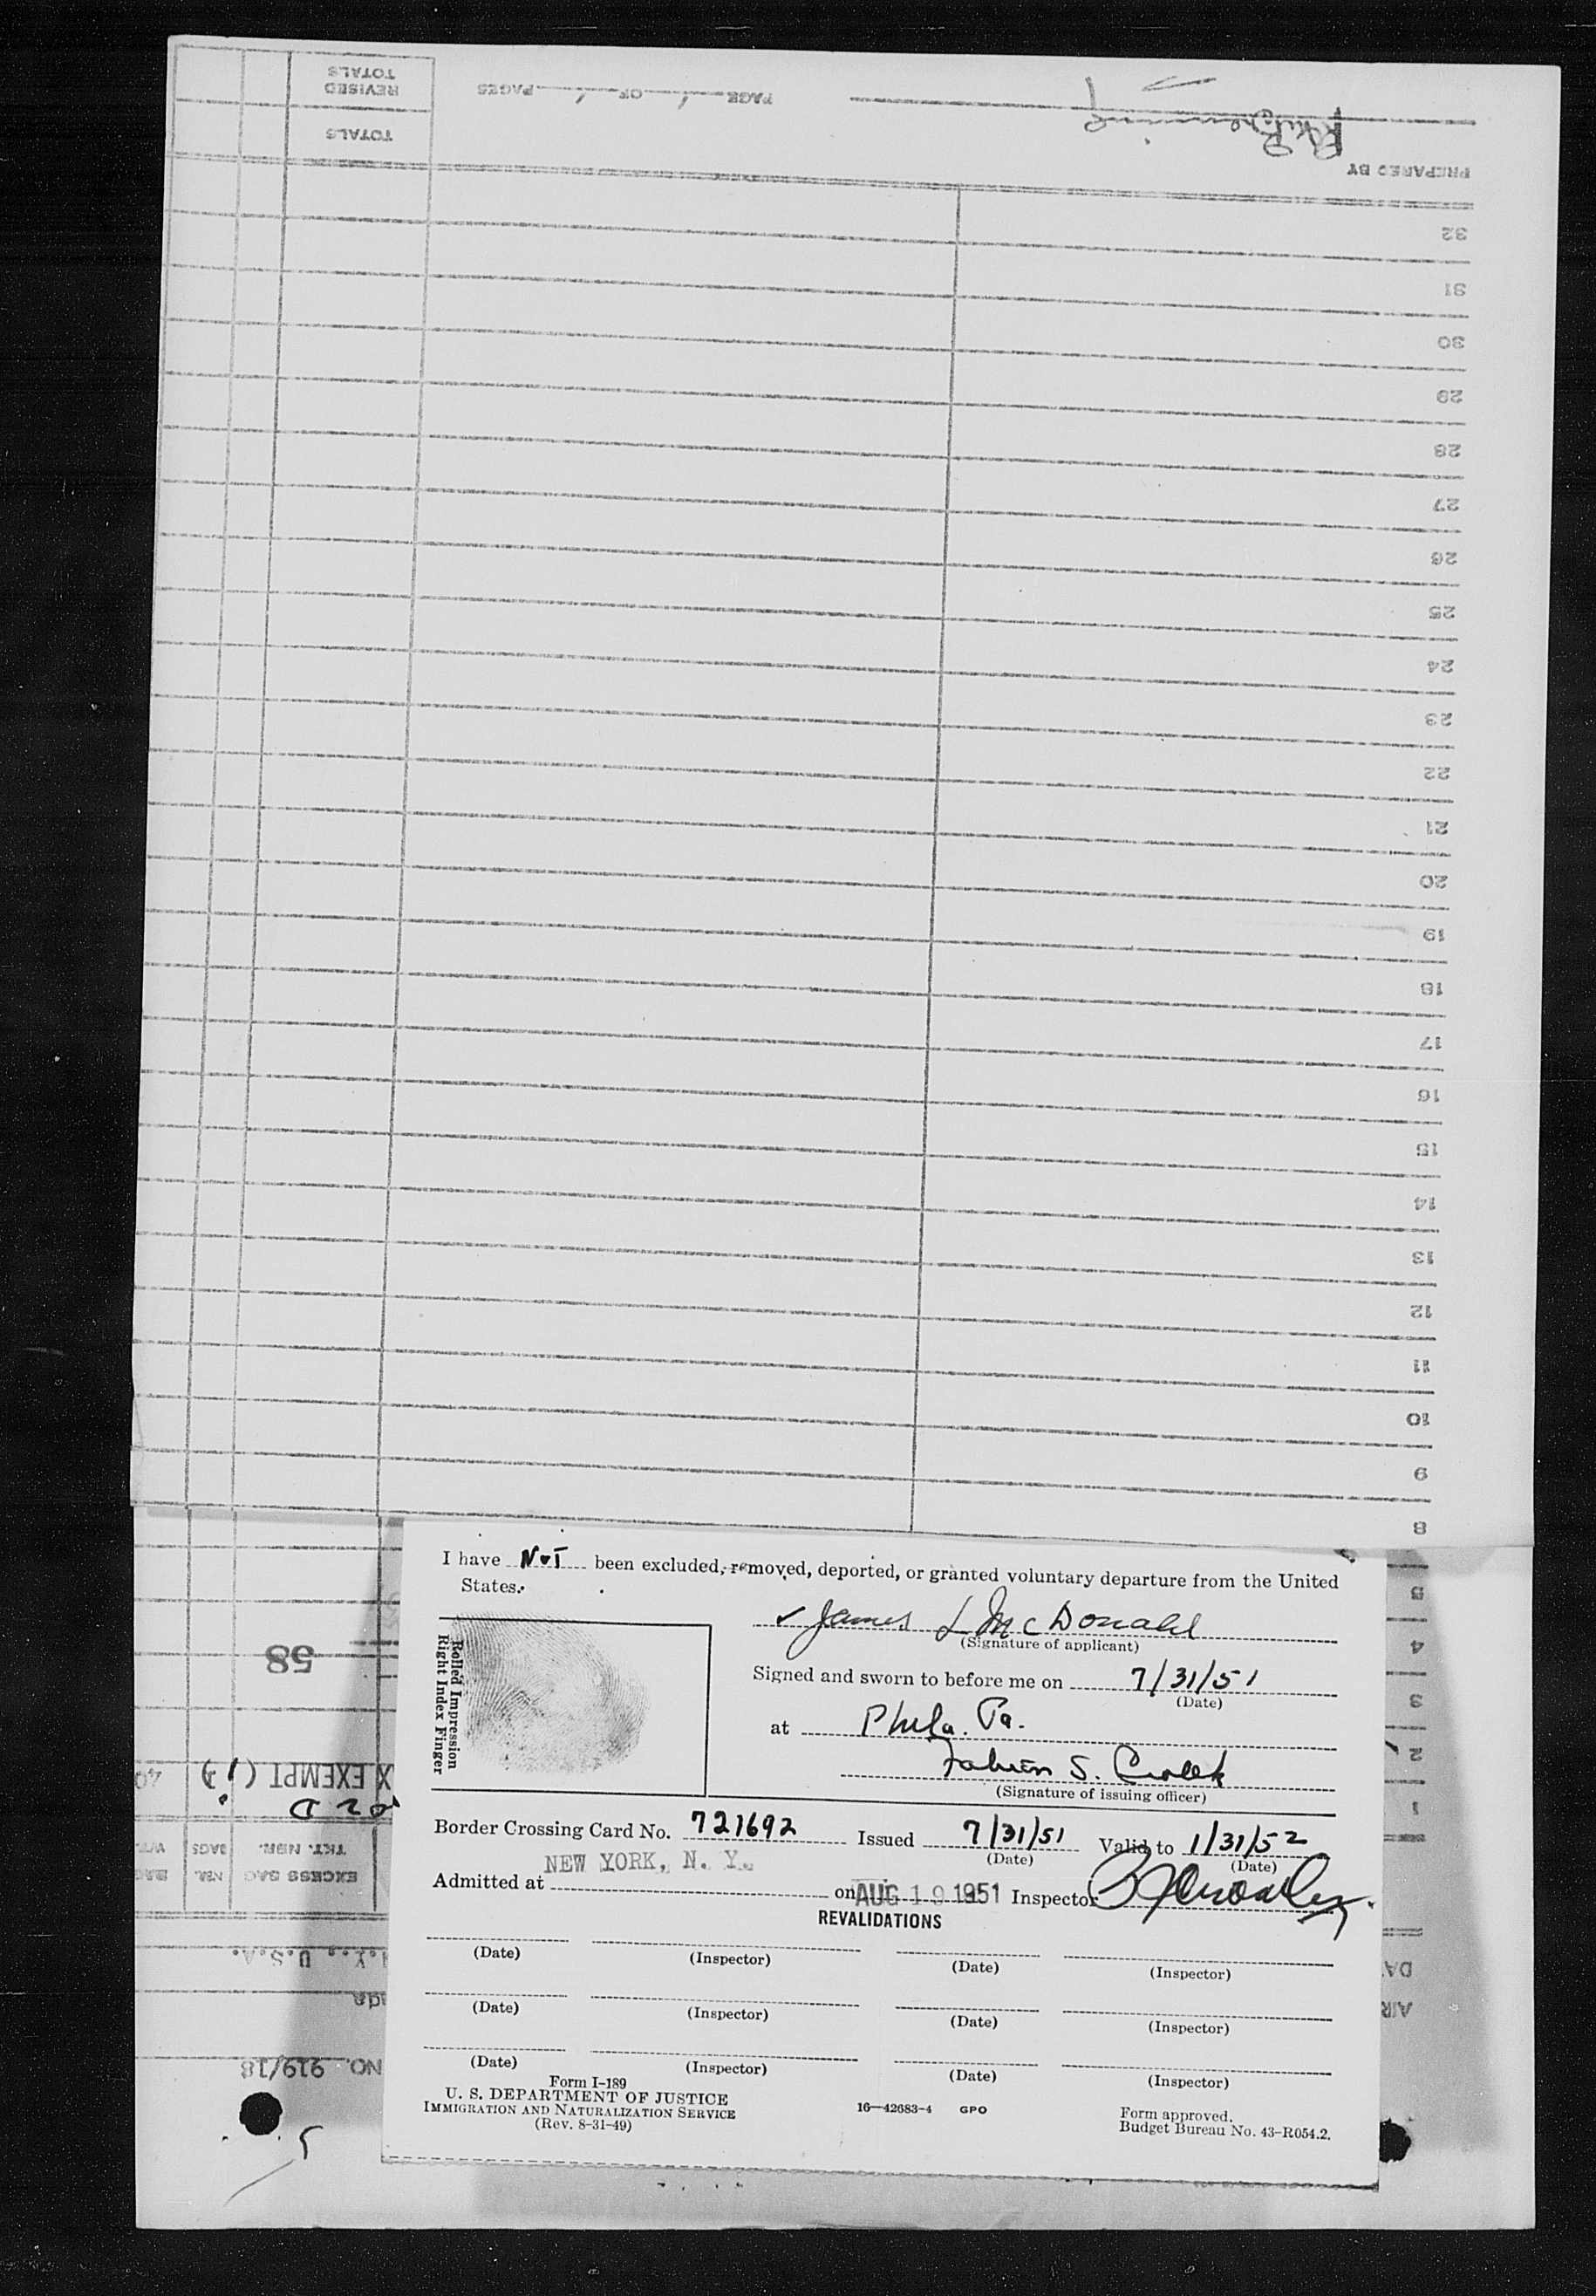 REVISED TOTALS
TOTALS
PAGE 1 OF 1 PAGES
PREPARED BY
32
31
30
29
28
27
26
25
24
23
22
21
20
19
18
17
16
15
14
13
12
11
10
9
8
I have NOT been excluded, removed, deported, or granted voluntary departure from the United
States.
James L McDonald
(Signature of applicant)
Rolled Impression
Right Index Finger
Signed and sworn to before me on 7/31/51
(Date)
at Phila. Pa.
(Signature of issuing officer)
Border Crossing Card No. 721692 Issued 7/31/51 Valid to 1/31/52
(Date) (Date)
NEW YORK, N. Y.
Admitted at on AUG 19 1951 Inspector
REVALIDATIONS
(Date) (Inspector) (Date) (Inspector)
(Date) (Inspector) (Date) (Inspector)
(Date) (Inspector) (Date) (Inspector)
Form I-189
U. S. DEPARTMENT OF JUSTICE
IMMIGRATION AND NATURALIZATION SERVICE
(Rev. 8-31-49)
16—42683-4 GPO
Form approved.
Budget Bureau No. 43-R054.2.
5
4
3
2
1
58
X EXEMPT
40
TKT. NBR.
BAGS
EXCESS BAG
NBR.
N.Y., U.S.A.
NO. 919/18
DA
AIR